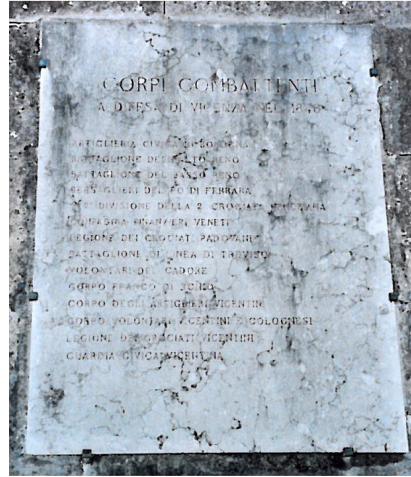 CORPI COMBATTENTI
A DIFESA DI VICENZA NEL 1848
ARTIGLIERIA CIVICA BOLOGNA
BATTAGLIONE DELL'ALTO RENO
BATTAGLIONE DEL BASSO RENO
BERSAGLIERI DEL PO DI FERRARA
DIVISIONE DELLA 2 CROCIATA VENEZIANA
COMPAGNIA FINANZIERI VENETI
LEGIONE DEI CROCIATI PADOVANI
BATTAGLIONE DI LINEA DI TREVISO
VOLONTARI DEL CADORE
CORPO FRANCO DI SCHIO
CORPO DEGLI ARTIGLIERI VICENTINI
CORPO VOLONTARI VICENTINI E COLOGNESI
LEGIONE DEI CROCIATI VICENTINI
GUARDIA CIVICA VICENTINA